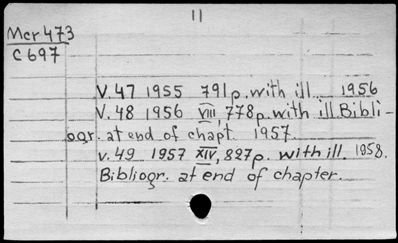 11
Mcr 473
C 697
V. 47 1955 791 p. with ill. 1956
V. 48 1956 VIII, 778 p. with ill. Bibli-
ogr. at end of chapt. 1957.
v. 49 1957 XIV, 827 p. with ill. 1958.
Bibliogr. at end of chapter.